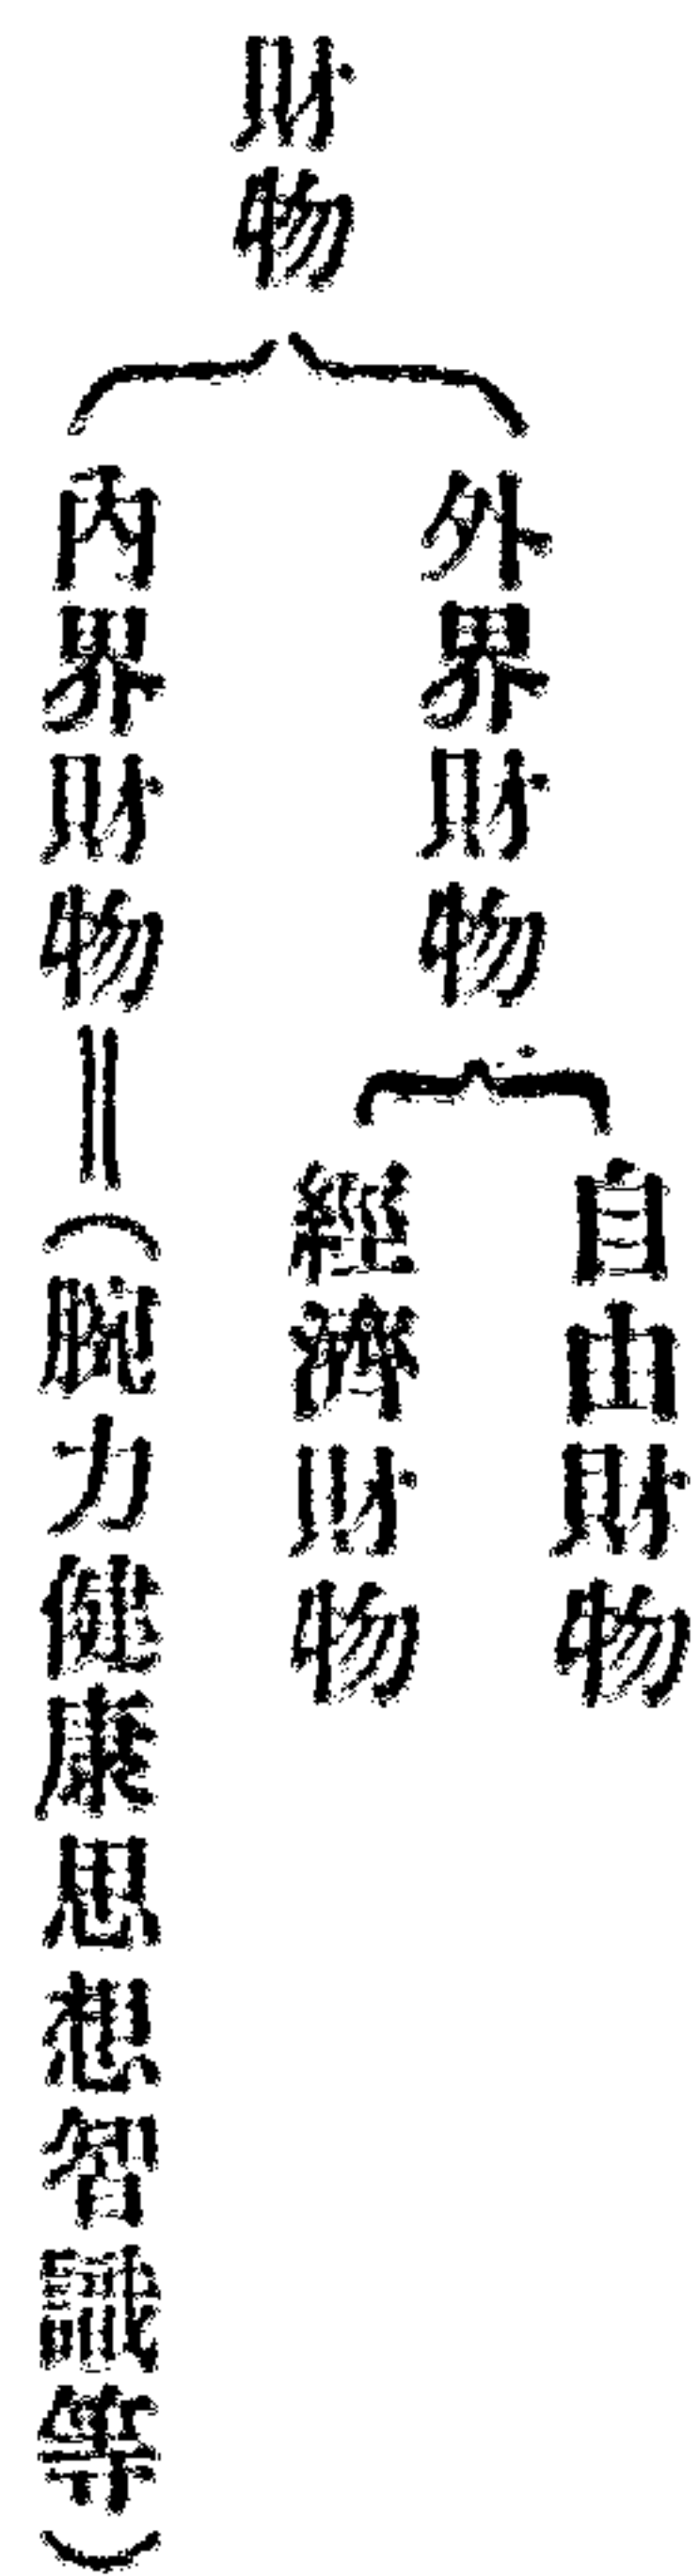 財物
外界財物
自由財物
經濟財物
內界財物＝(腕力健康思想智識等)